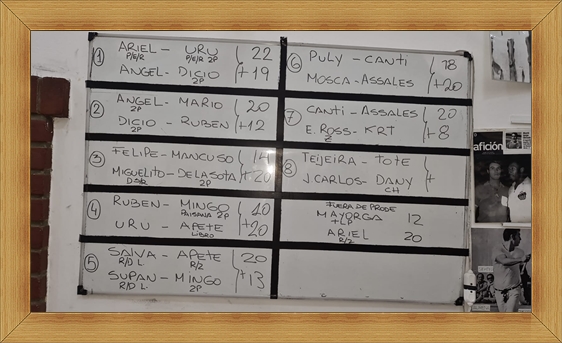 1 ARIEL - URU 22
P/E/R P/E/R 2P
ANGEL - DICIO +19
2P
2 ANGEL - MARIO 20
2P
DICIO - RUBEN +12
2P
3 FELIPE - MANCUSO 14
MIGUELITO - DELASOTA +20
2P
4 RUBEN - MINGO 10
PAISANA 2P
URU - APETE +20
LIBRO
5 SALVA - APETE 20
R/D L. R/2
SUPAN - MINGO +13
R/D L. 2P
6 PULY - CANTI 18
MOSCA - ASSALES +20
7 CANTI - ASSALES 20
E. ROSS - KRT +8
2
8 TEIJEIRA - TOTE
J CARLOS - DANY +
CH
FUERA DE PRODE
MAYORGA 12
+LP
ARIEL 20
R/2
afición